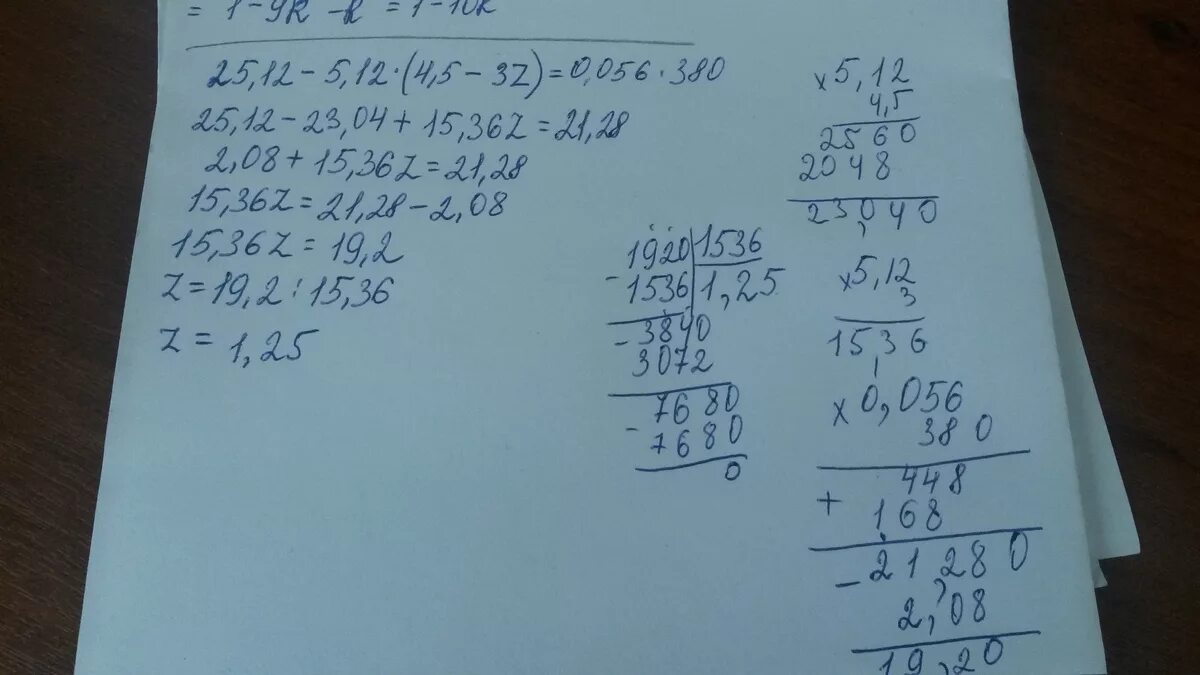 = 1-9k -k = 1-10k
25,12 - 5,12·(4,5 - 3z) = 0,056·380
25,12 - 23,04 + 15,36z = 21,28
2,08 + 15,36z = 21,28
15,36z = 21,28 - 2,08
15,36z = 19,2
z = 19,2 : 15,36
z = 1,25
1920 | 1536
- 1536 | 1,25
- 3840
3072
- 7680
7680
0
x 5,12
4,5
2560
2048
23,040
x 5,12
3
15,36
x 0,056
380
448
+ 168
- 21,280
2,08
19,20